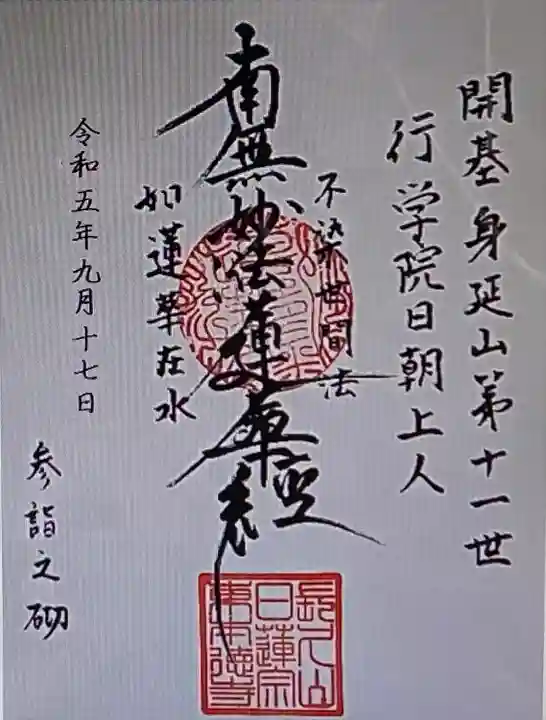 開基身延山第十一世
行学院日朝上人
不染世間法
南無妙法蓮華経
如蓮華在水
令和五年九月十七日
参詣之砌
日蓮宗